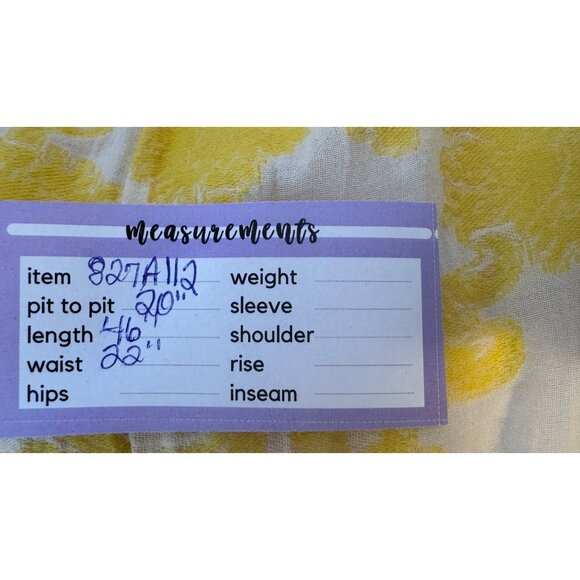 measurements
item 827A112 weight
pit to pit 20" sleeve
length 46" shoulder
waist 22" rise
hips inseam